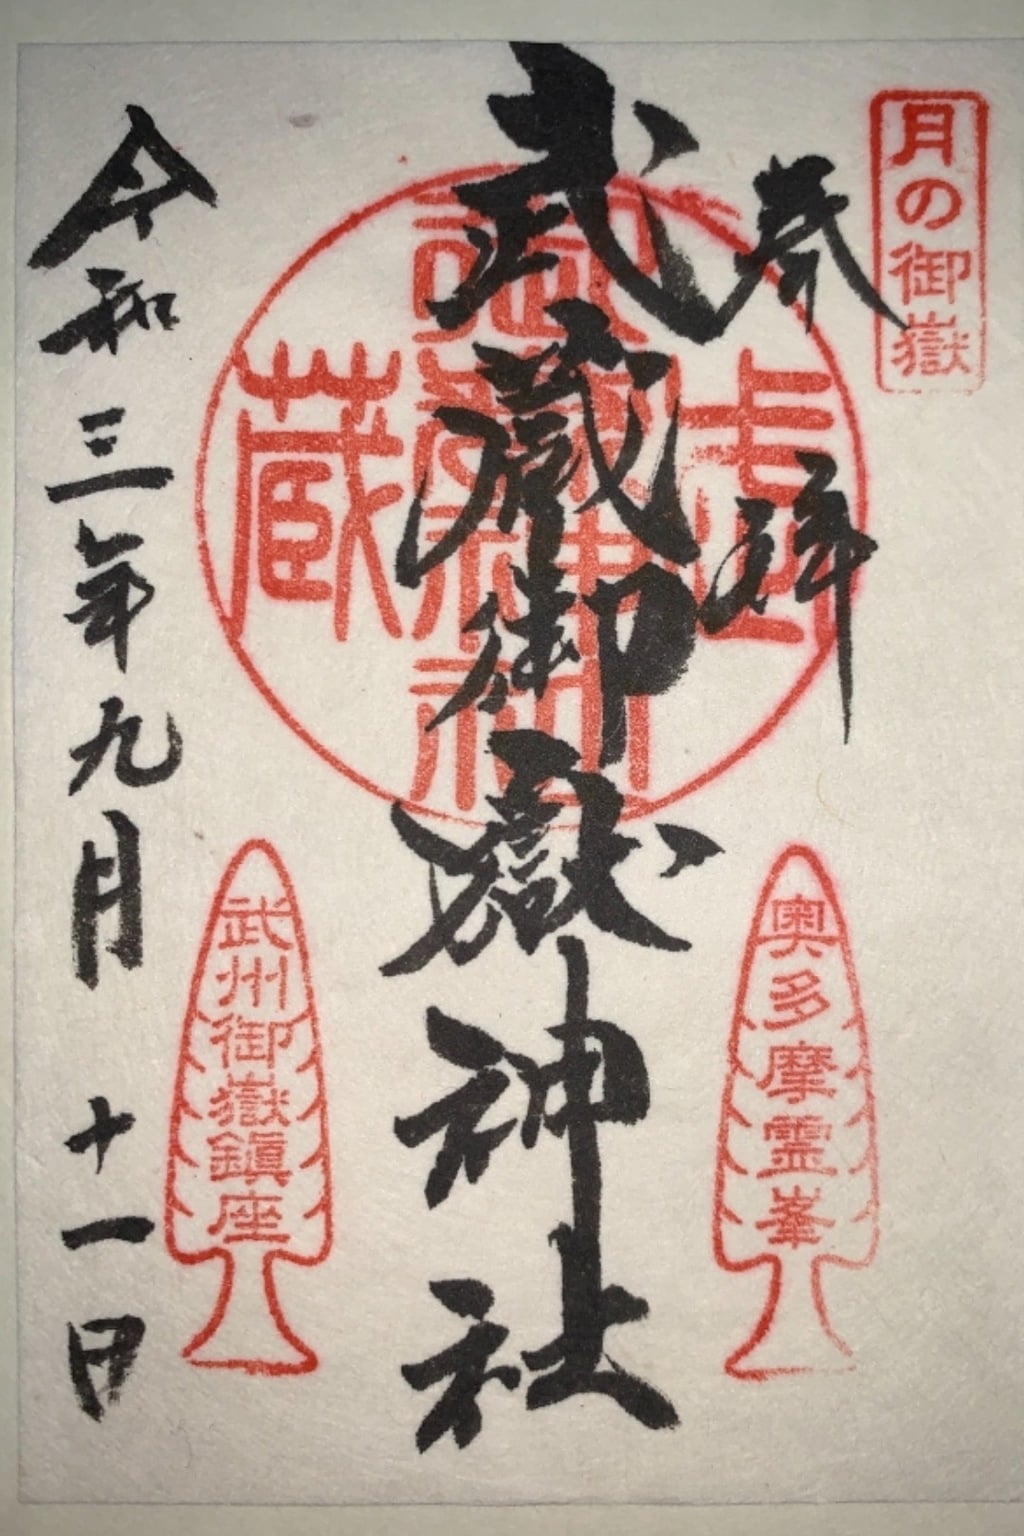 月の御嶽
奉拝
武蔵御嶽神社
令和三年九月十一日
武蔵
御嶽神社
奥多摩霊峯
武州御嶽鎮座